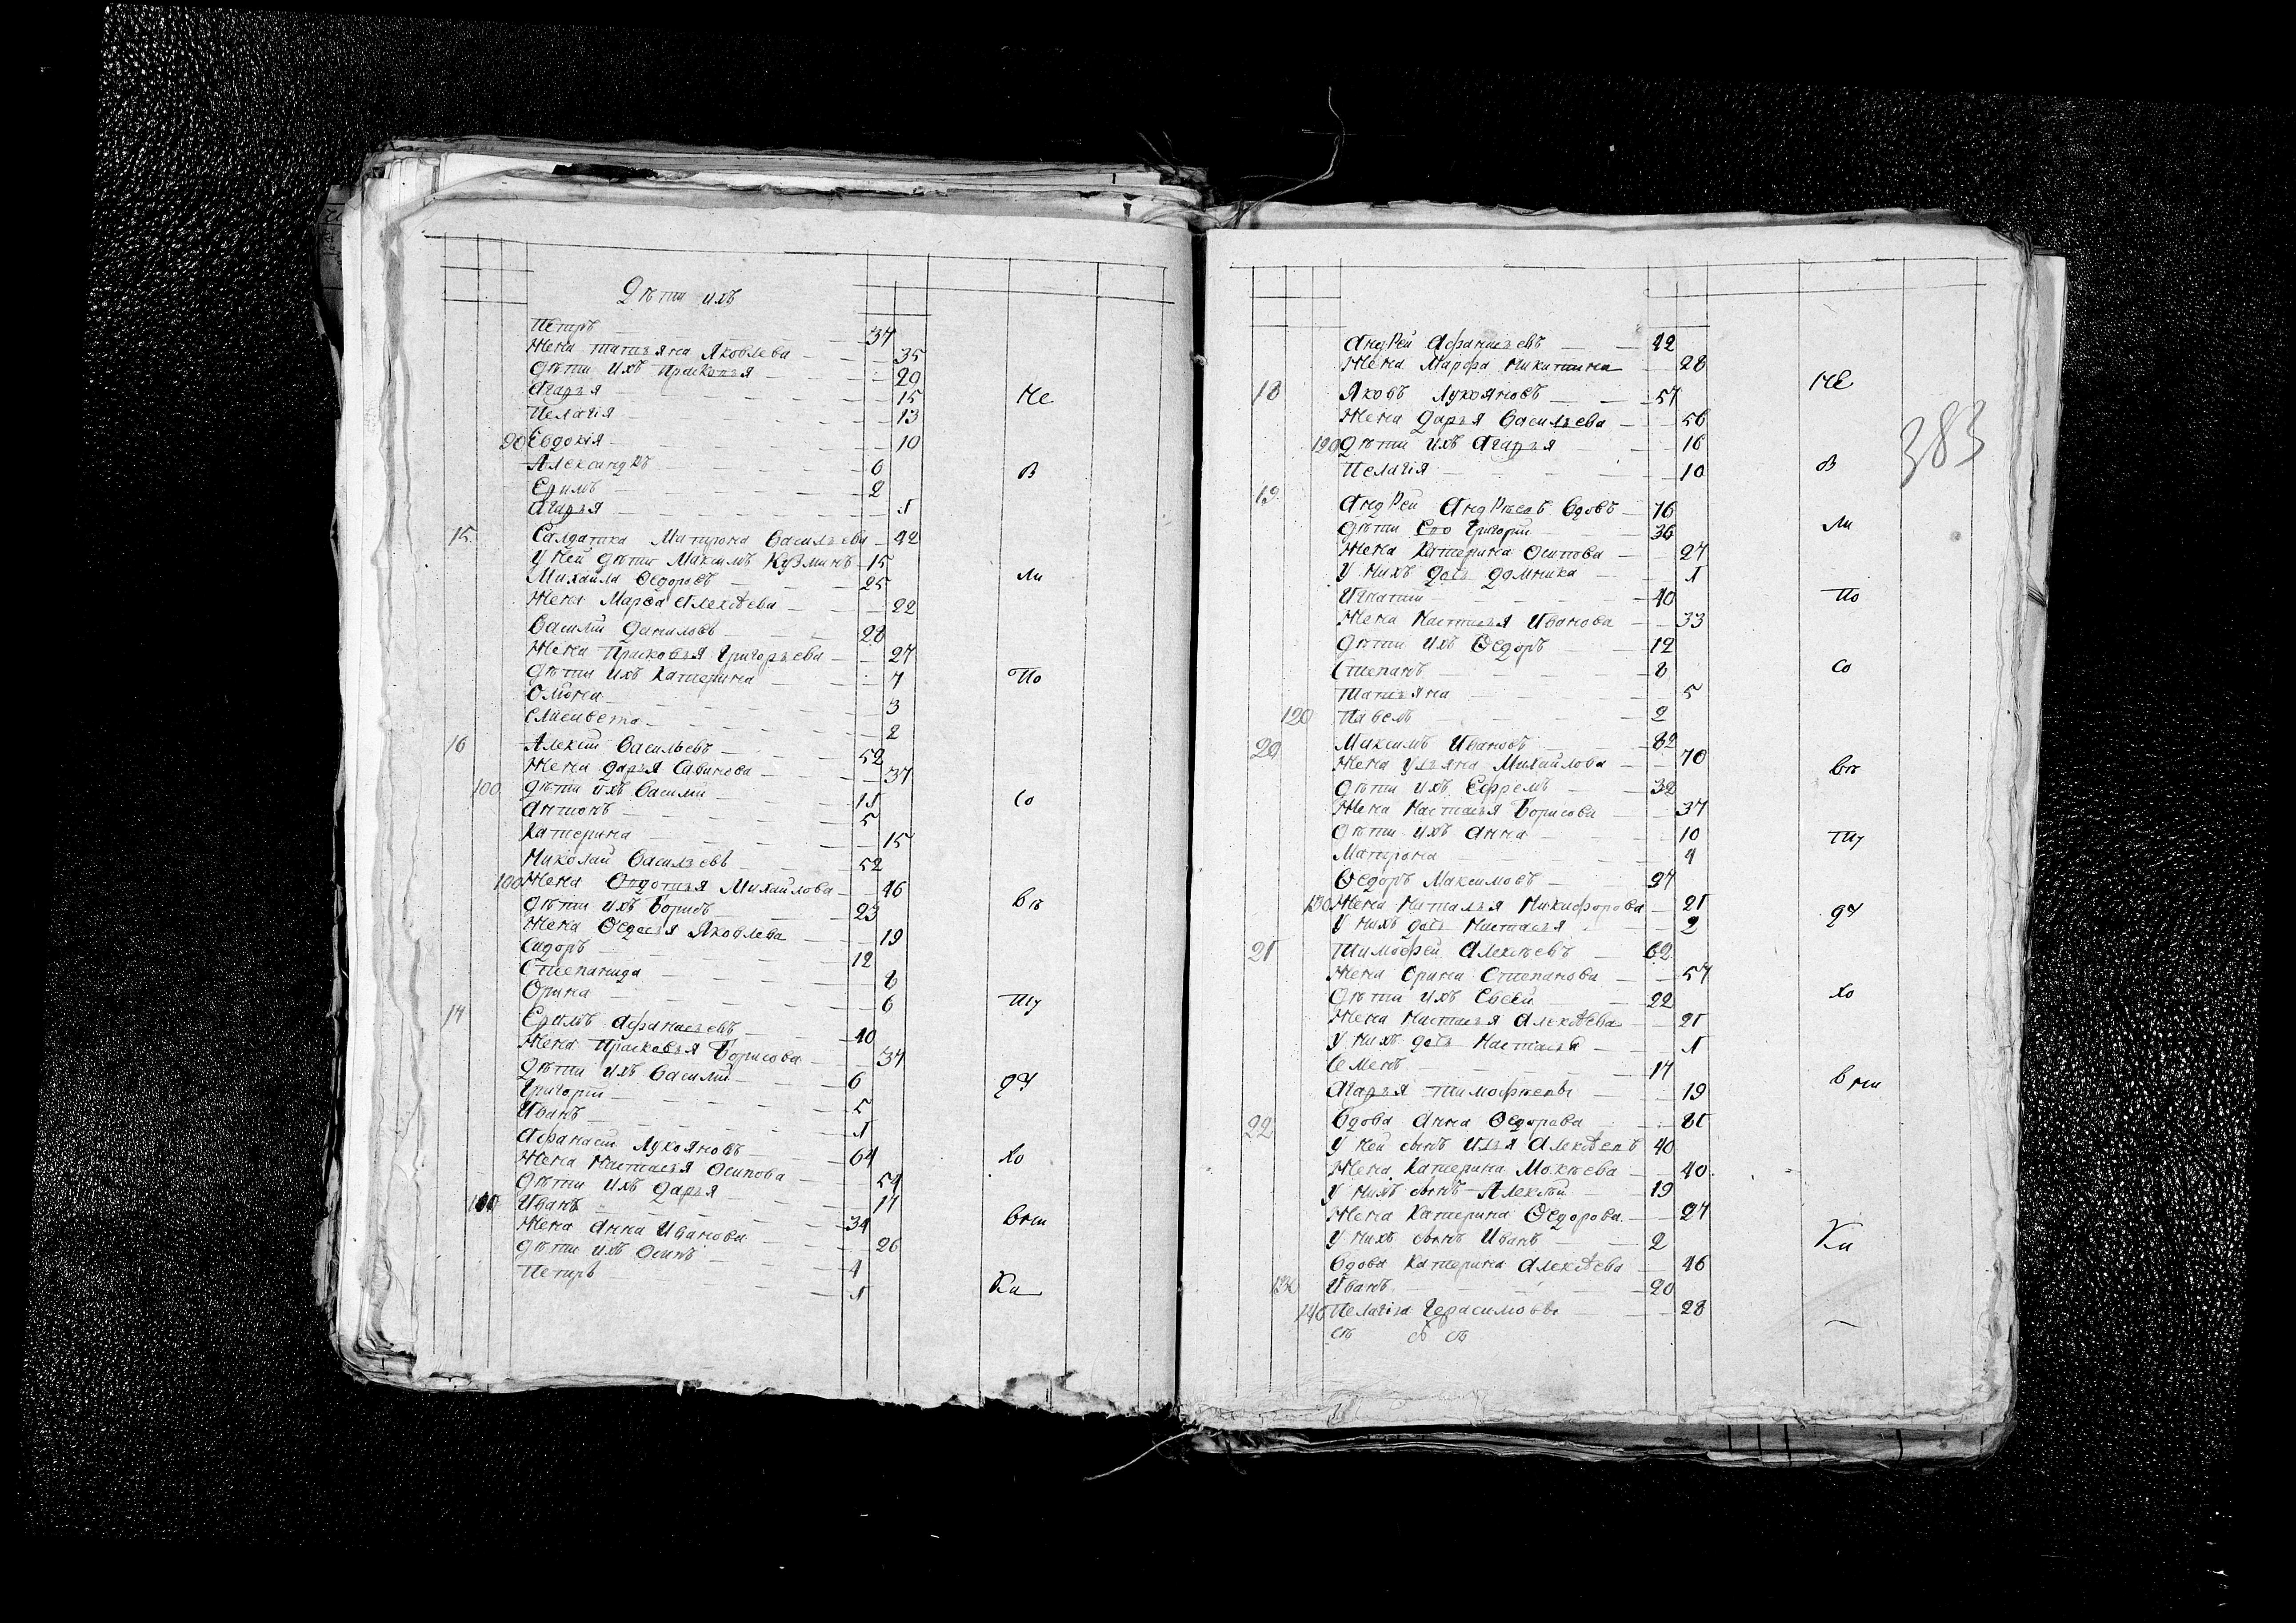 Дѣти ихъ
Петръ 37
Жена Татьяна Яковлева 35
Дѣти ихъ Прасковья 20
Агарья 15 Не
Пелагія 13
90 Евдокія 10
Александръ 6 В
Ермлъ 2
Агарья 1
15 Салдатка Матрона Васильева 42
У ней дѣти Максимъ Кузминъ 15
Михайла Ѳедоровъ 25 Ли
Жена Марѳа Алексѣева 22
Василій Даниловъ 28
Жена Прасковья Григорьева 27
Дѣти ихъ Катерина 7 По
Олиона 3
Елисивета 2
16 Алексій Васильевъ 52
Жена Дарья Савинова 37
100 Дѣти ихъ Василій 11 Со
Антонъ 5
Катерина 15
Николай Васильевъ 52
100 Жена Овдотья Михайлова 46
Дѣти ихъ Борисъ 23 Вѣ
Жена Ѳедосья Яковлева 19
Сидоръ 12
Степанида 8
Орина 6 Ту
17 Ермлъ Афанасьевъ 40
Жена Прасковья Борисова 37
Дѣти ихъ Василій 6 ДЧ
Григорій 5
Иванъ 1
Афанасій Лукояновъ 64 Хо
Жена Настасья Осипова 54
Дѣти ихъ Дарья 17
Иванъ 34 Вни
Жена Анна Иванова 26
Дѣти ихъ Осипъ 4
Петръ 1 Ки
383
Андрей Афанасьевъ 42
Жена Марфа Никитина 28
18 Яковъ Лукояновъ 57 Не
Жена Дарья Васильева 56
120 Дѣти ихъ Агарья 16
Пелагія 10 В
19 Андрей Андрѣевъ Вдовъ 76
Дѣти Его Григорій 36 Ли
Жена Катерина Осипова 27
У нихъ дочь Домника 1
Игнатій 40 По
Жена Настасья Иванова 33
Дѣти ихъ Ѳедоръ 12
Степанъ 8 Со
Татьяна 5
120 Павелъ 2
20 Максимъ Ивановъ 82
Жена Ульяна Михайлова 70 Вѣ
Дѣти ихъ Ефремъ 32
Жена Настасья Борисова 37
Дѣти ихъ Анна 10 Ту
Матрона 9
Ѳедоръ Максимовъ 27
130 Жена Наталья Никифорова 21 ДЧ
У нихъ дочь Настасья 2
21 Тимофей Алексѣевъ 62
Жена Орина Степанова 57
Дѣти ихъ Евсей 22 Хо
Жена Настасья Алексѣева 21
У нихъ дочь Настасья 1
Семенъ 17 Вни
Агарья Тимофѣева 19
22 Вдова Анна Ѳедорова 81
У ней сынъ Илья Алексѣевъ 40
Жена Катерина Мокѣева 40
У нихъ сынъ Алексѣй 19
Жена Катерина Ѳедорова 27
У нихъ сынъ Иванъ 2 Ки
Вдова Катерина Алексѣева 46
130 Иванъ 20
140 Пелагія Герасимовна 28